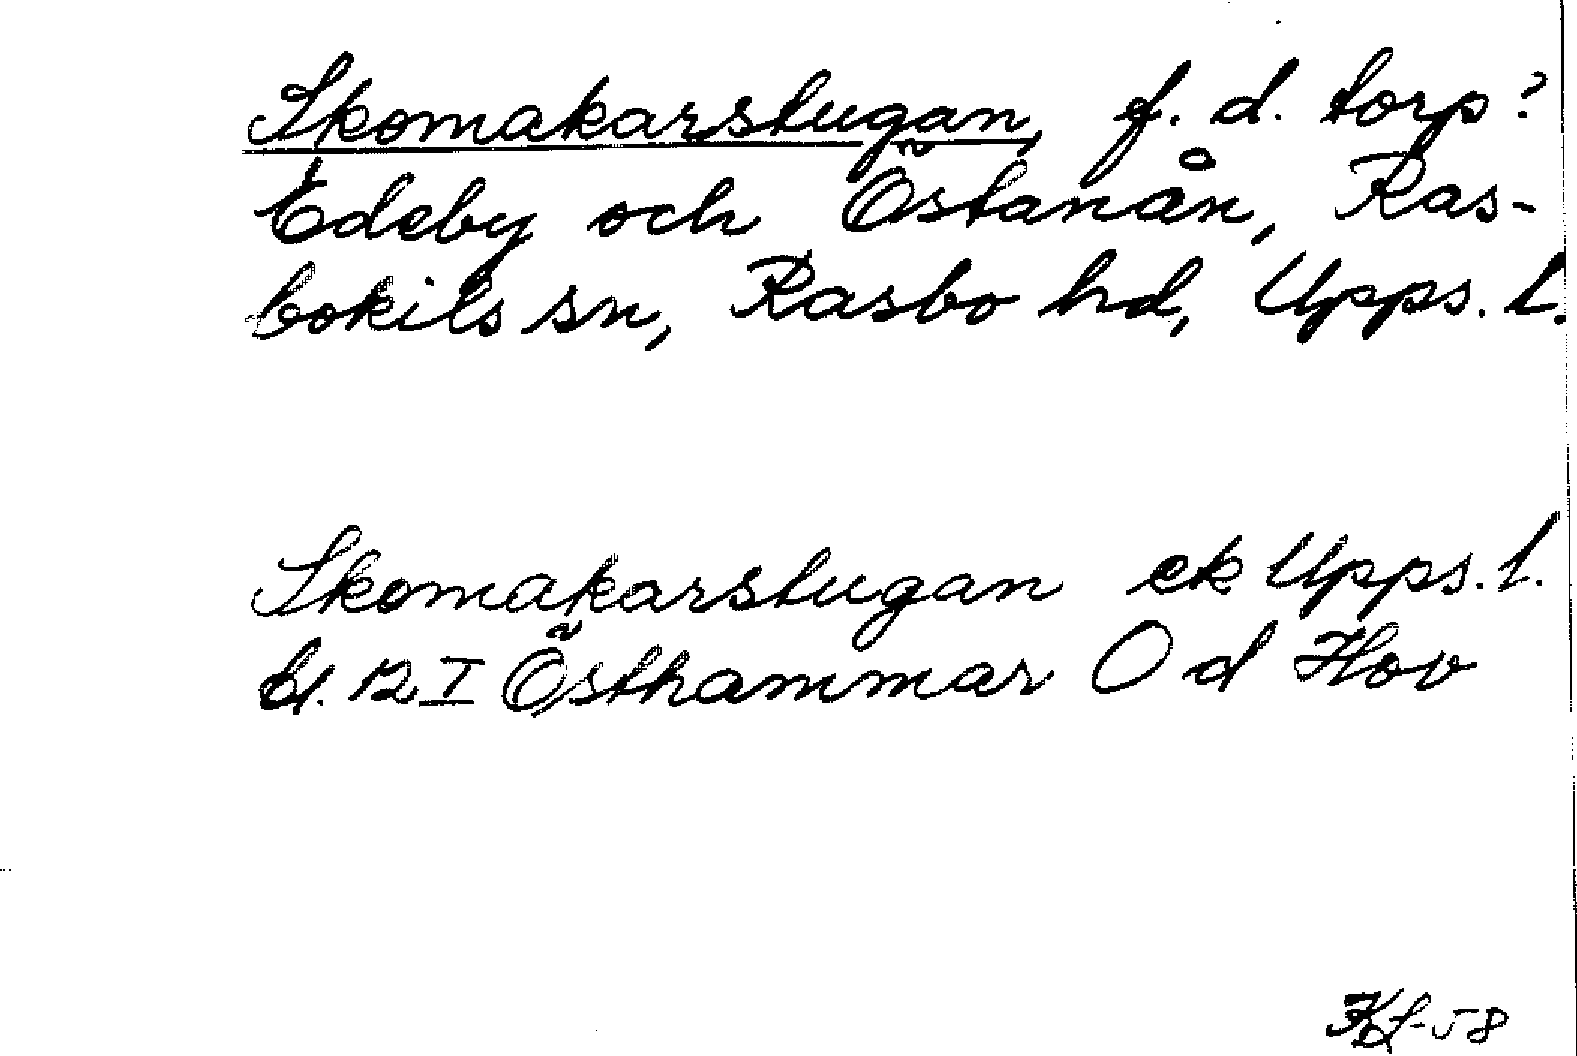 Skomakarstugan, f. d. torp?
Edeby och Östanån, Ras-
bokils sn, Rasbo hd, Upps. l.
Skomakarstugan ek Upps. l.
bl. 12 I Östhammar O d Hov